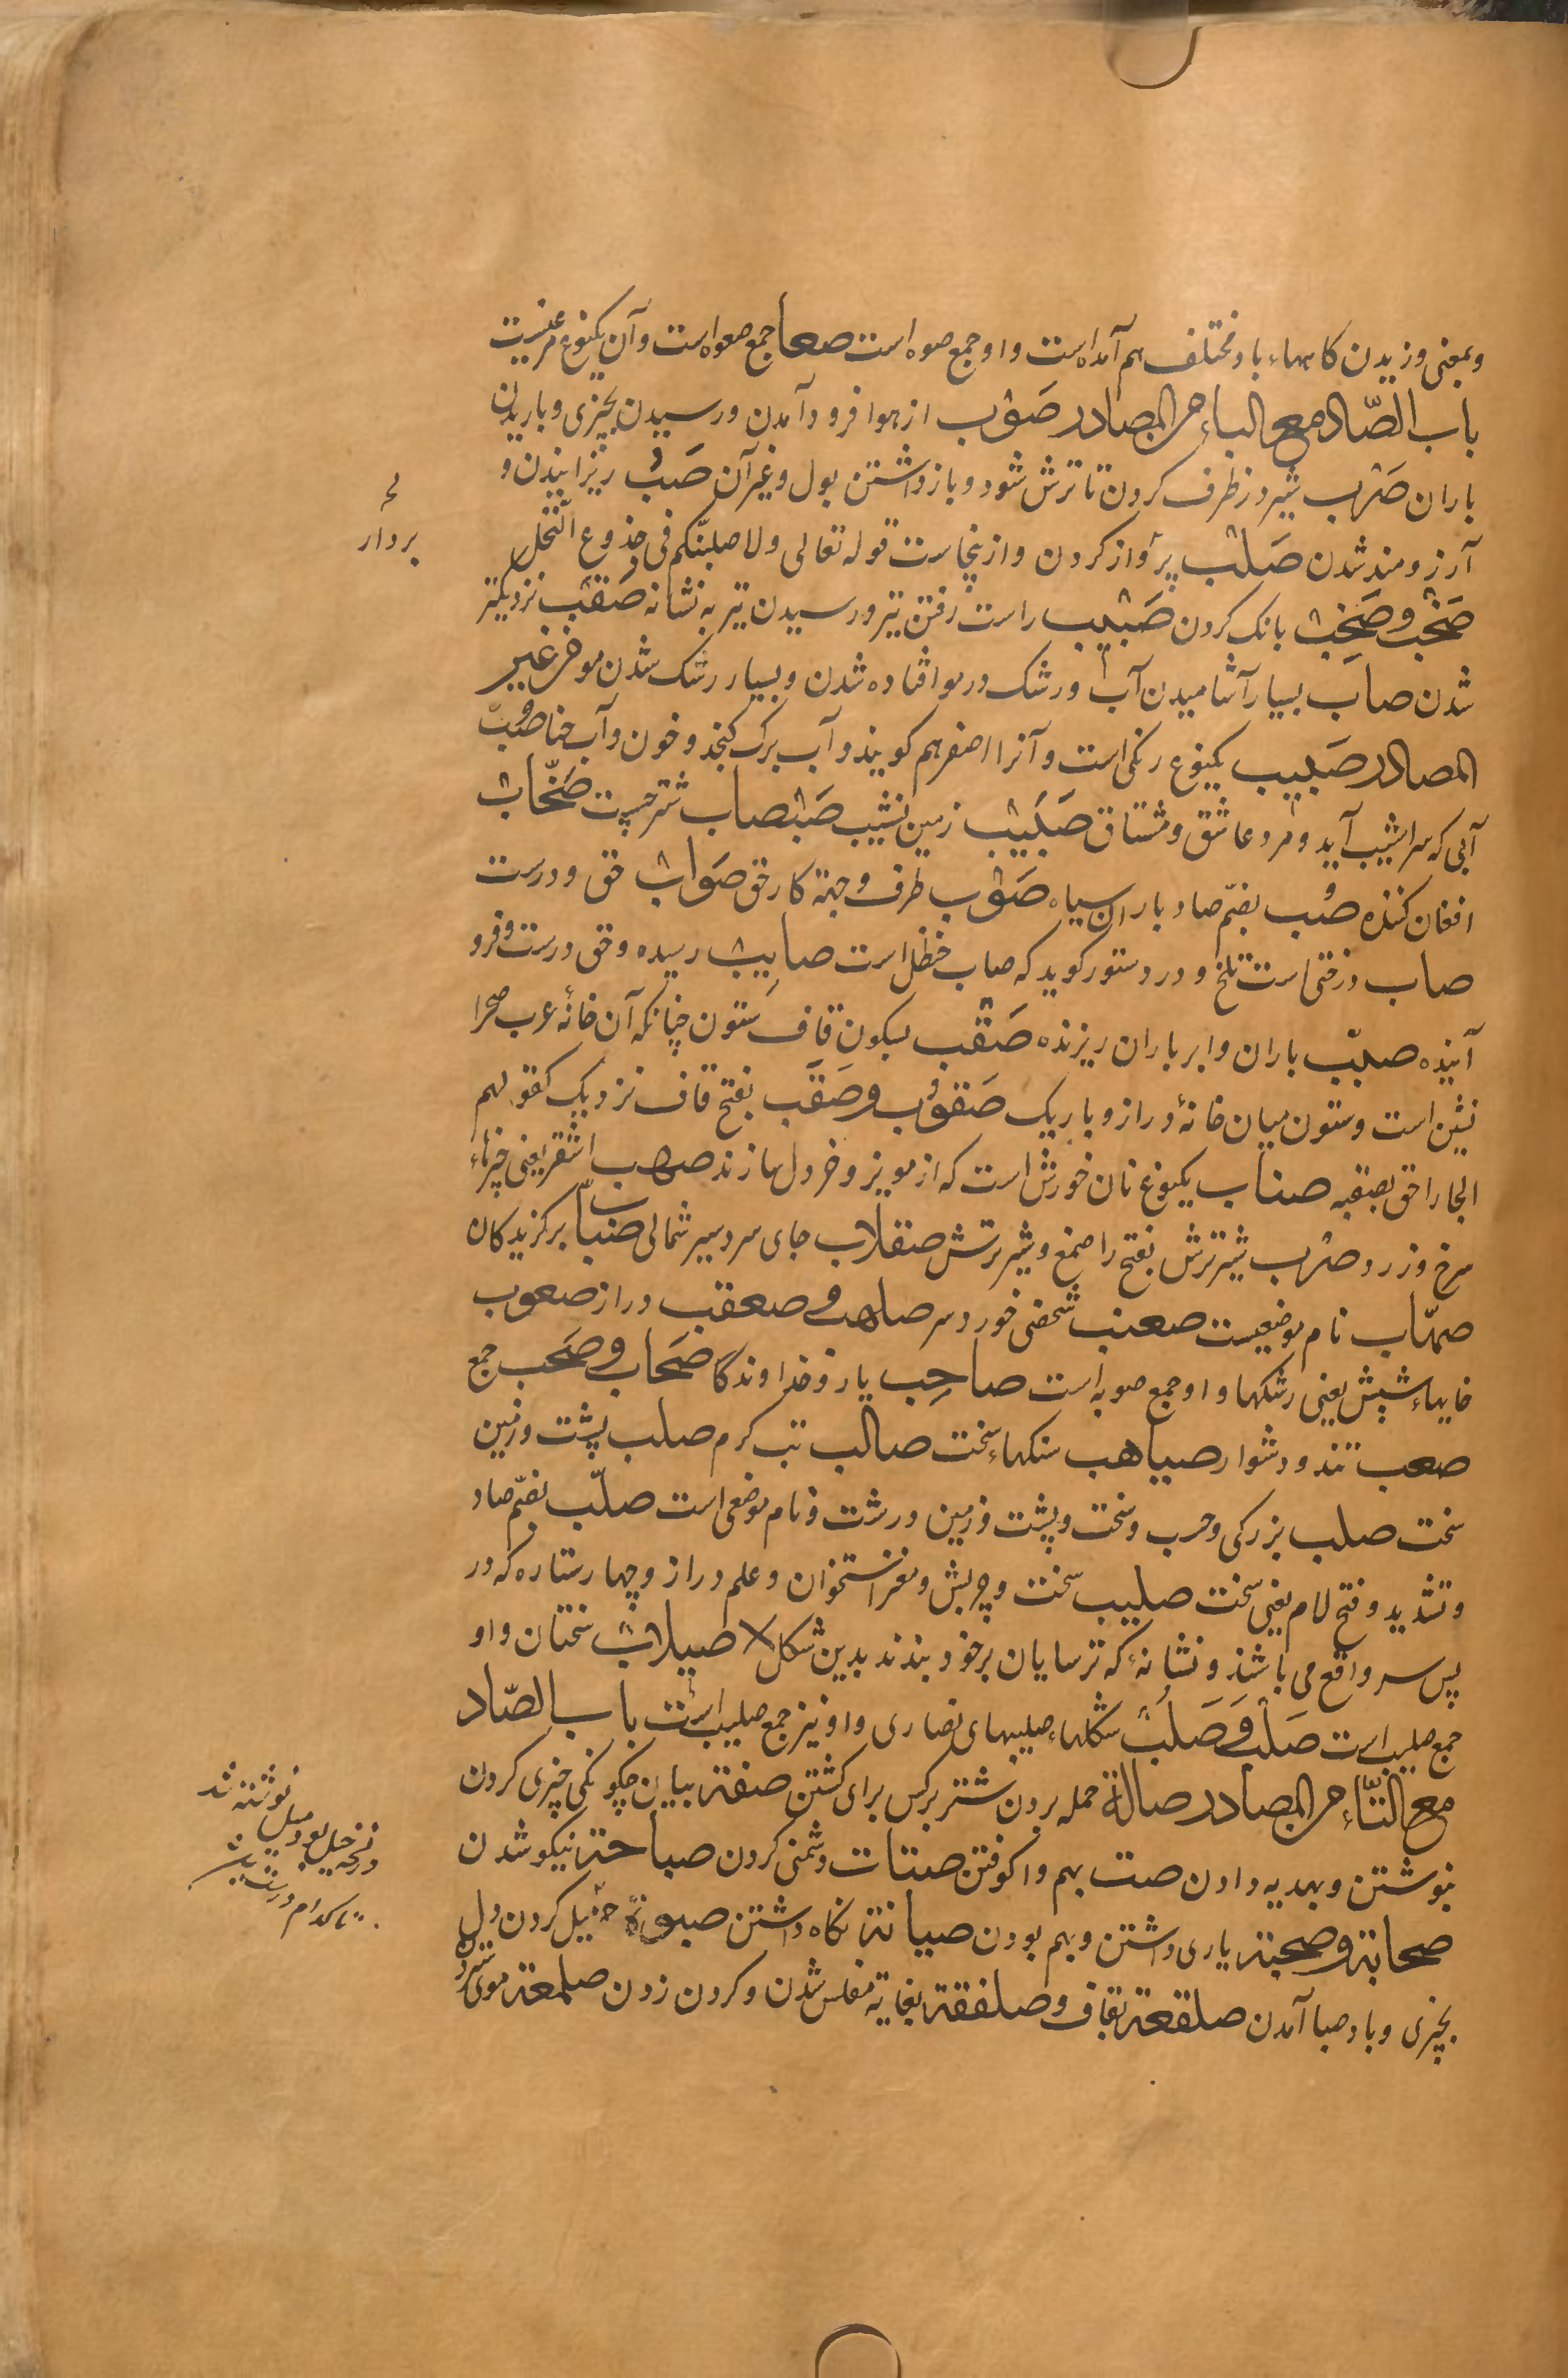 وبمعنی وزیدن کاهها باد مختلف هم آمده است واو جمع صوه است صعا جمع صعوه است و آن یکنوع مرغیست
باب الصّاد مع الباء من المصادر صَوْب از هوا فرود آمدن ورسیدن بچیزی وباریدن
باران صَرْب شیر در ظرف کردن تا ترش شود وبازداشتن بول وغیر آن صَبٌّ ریزانیدن و
آرزومند شدن صَلْب بر آواز کردن وازینجاست قوله تعالی ولاصلبنّکم فی جذوع النّخل
صَخْب وصَخَب بانک کردن صَبْیب راست رفتن تیر ورسیدن تیر به نشانه صَقْب نزدیکتر
شدن صاَب بسیار آشامیدن آب ورشک در مو افتاده شدن وبسیار رشک شدن مو من غیر
المصادر صَبیب یکنوع رنکی است وآنرا اصفر هم کویند وآب برک کنجد وخون وآب حنا صُبّ
آبی که سراشیب آید ومرد عاشق ومشتاق صَبَبٌ زمین نشیب صَبْصاب شتر چست صَخّابٌ
افغان کننده صُب بضمّ صاد باران سیاه صَوْب طرف وجهة کار حق صَوابٌ حق ودرست
صاب درختی است تلخ ودر دستور کوید که صاب حنظل است صایِبٌ رسیده وحق درست وفرو
آینده صیّب باران وابر باران ریزنده صَقْب بسکون قاف ستون چنانکه آن خانهٔ عرب صحرا
نشین است وستون میان خانهٔ دراز وباریک صَقوْب وصَقَب بفتح قاف نزدیک کقولهم
الجار احق بصقبه صناب یکنوع نان خورش است که از مویز وخردل سازند صهب اشقر یعنی چیزهاء
سرخ وزرد صَرْب شیر ترش بفتح را صمغ وشیر ترش صقلاب جای سردسیر شمالی صُیّاب برکزیدکان
صهّاب نام موضعیست صعنب شخصی خورد سر صلهب وصعقب دراز صعوب
خایهاء شپش یعنی رشکها واو جمع صوبه است صاحِب یار وخداوند صَحاب وصَحْب جمع
صعب تند ودشوار صیاهب سنکهاء سخت صالب تب کرم صلب پشت وزمین
سخت صلب بزرکی وحسب وسخت وپشت وزمین درشت ونام موضعی است صلّب بضمّ صاد
وتشدید وفتح لام یعنی سخت صلیب سخت وچربش ومغز استخوان وعلم دراز وچهار ستاره که در
پس سر واقع می باشند ونشانهٔ که ترسایان بر خود بندند بدین شکل X صیلابٌ سختان واو
جمع صلیب است صَلْب وَصَلَبٌ شکلهاء صلیبهای نصاری واو نیز جمع صلیب است باب الصّاد
مع التّاء من المصادر صالة حمله بردن شتر برکس برای کشتن صفة بیان چکونکی چیزی کردن
نوشتن وبهدیه دادن صت بهم واکوفتن صتات دشمنی کردن صباحة نیکو شدن
صحابة وصحبة یاری داشتن وبهم بودن صیانة نکاه داشتن صبوة میل کردن دل
بچیزی وباد صبا آمدن صلقعة بقاف وصلفقة بغایة مفلس شدن وکردن زدن صلمعة موی سترد
بردار
نوشته شد